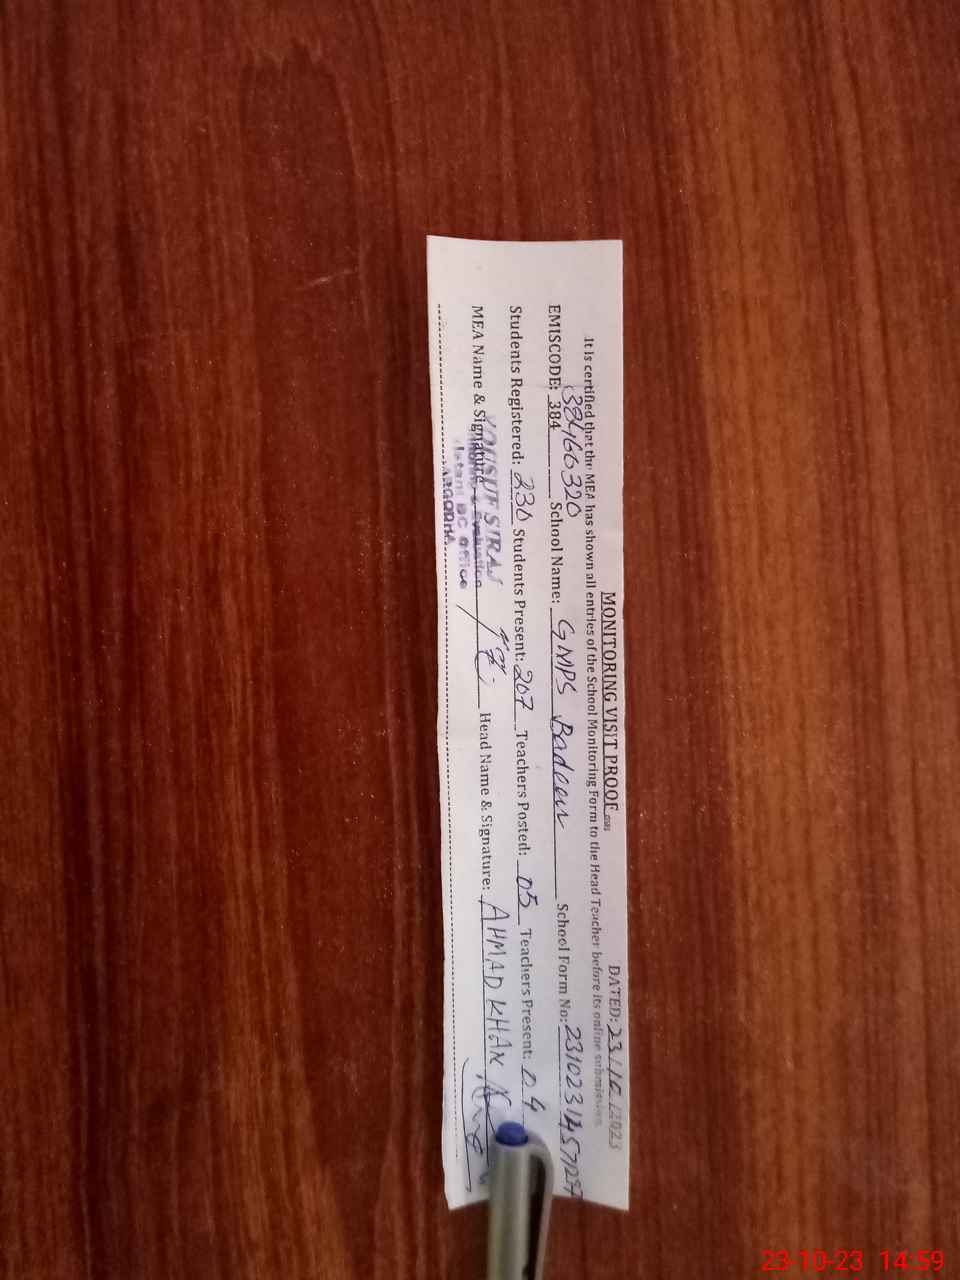 MONITORING VISIT PROOF DATED: 23/10/2023
It is certified that the MEA has shown all entries of the School Monitoring Form to the Head Teacher before its online submission.
EMISCODE: 384 38466320 School Name: GMPS School Form No:
Students Registered: 230 Students Present: 207 Teachers Posted: 05 Teachers Present: 04
MEA Name & Signature Head Name & Signature: AHMAD KHAN
YOUSUF
Monitoring & Evaluation
DC Office
23-10-23 14:59